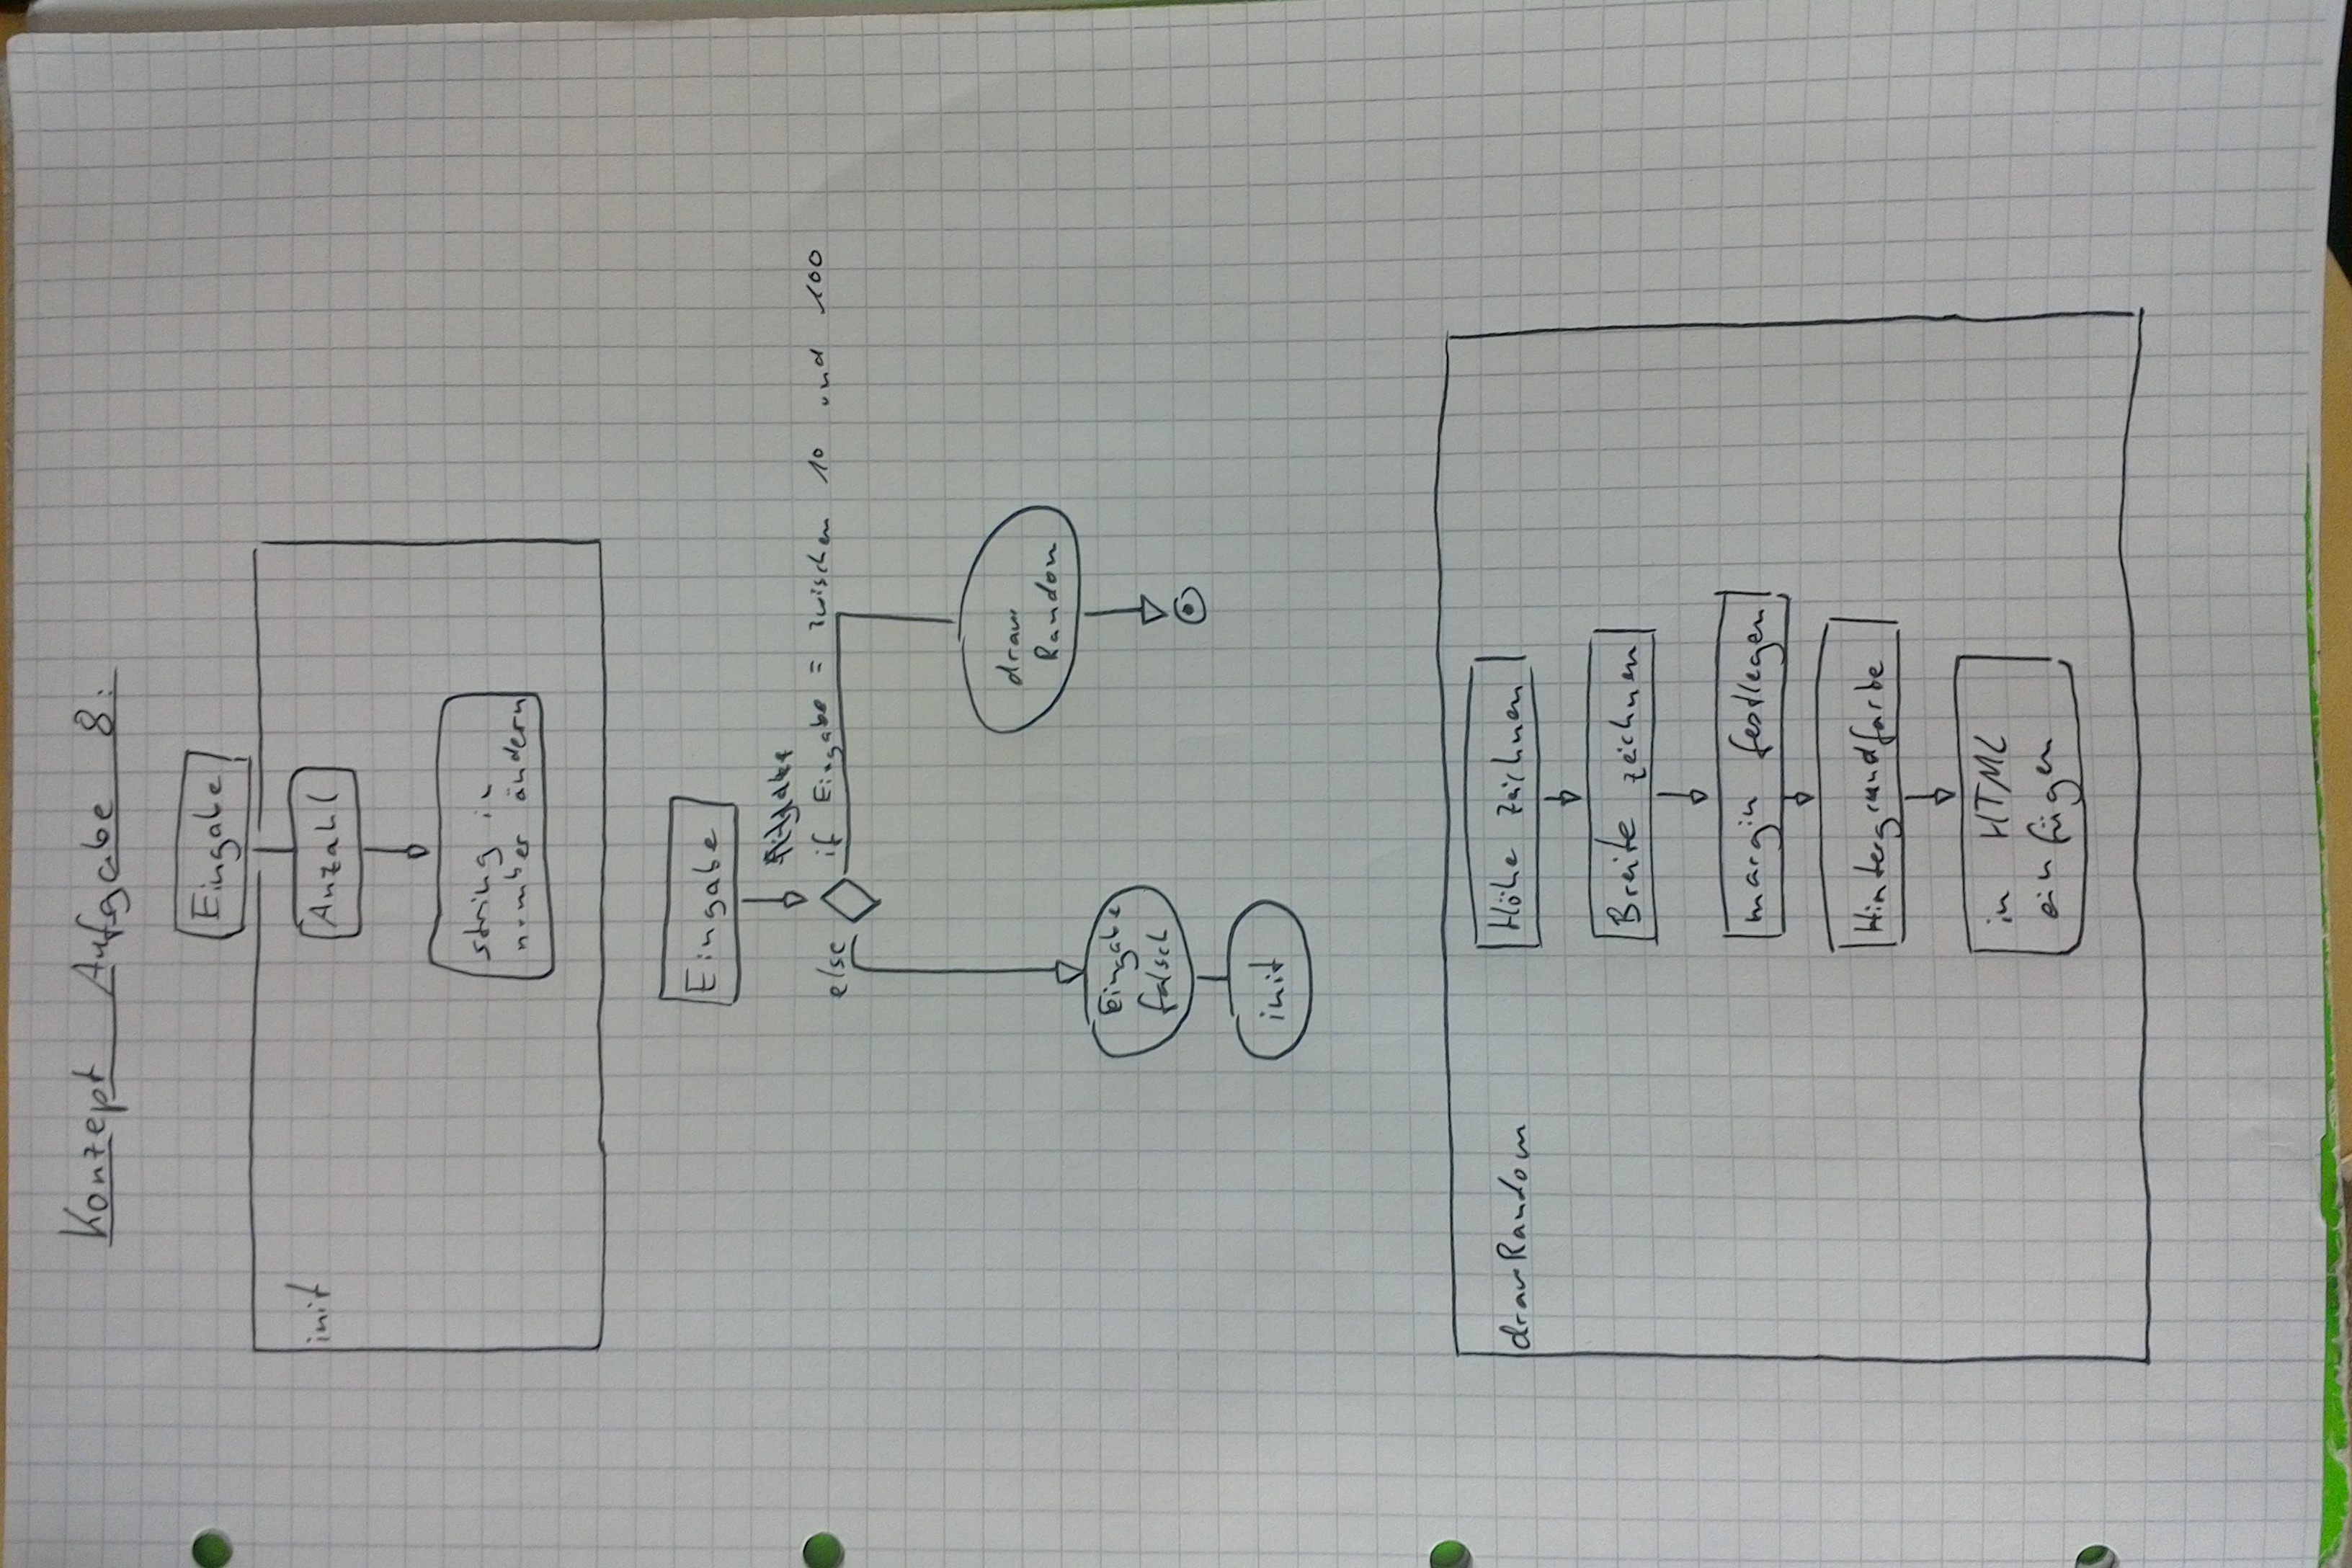 Konzept Aufgabe 8:
Eingabe
init
Anzahl
string in
number ändern
Eingabe
else
if Eingabe = zwischen 10 und 100
draw
Random
Eingabe
falsch
init
drawRandom
Höhe zeichnen
Breite zeichnen
margin festlegen
Hintergrundfarbe
in HTML
einfügen